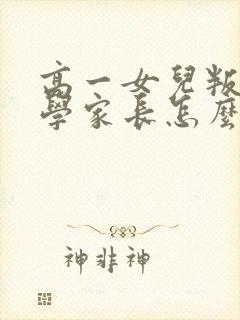 高一女兒叛
學家長怎麼
神非神